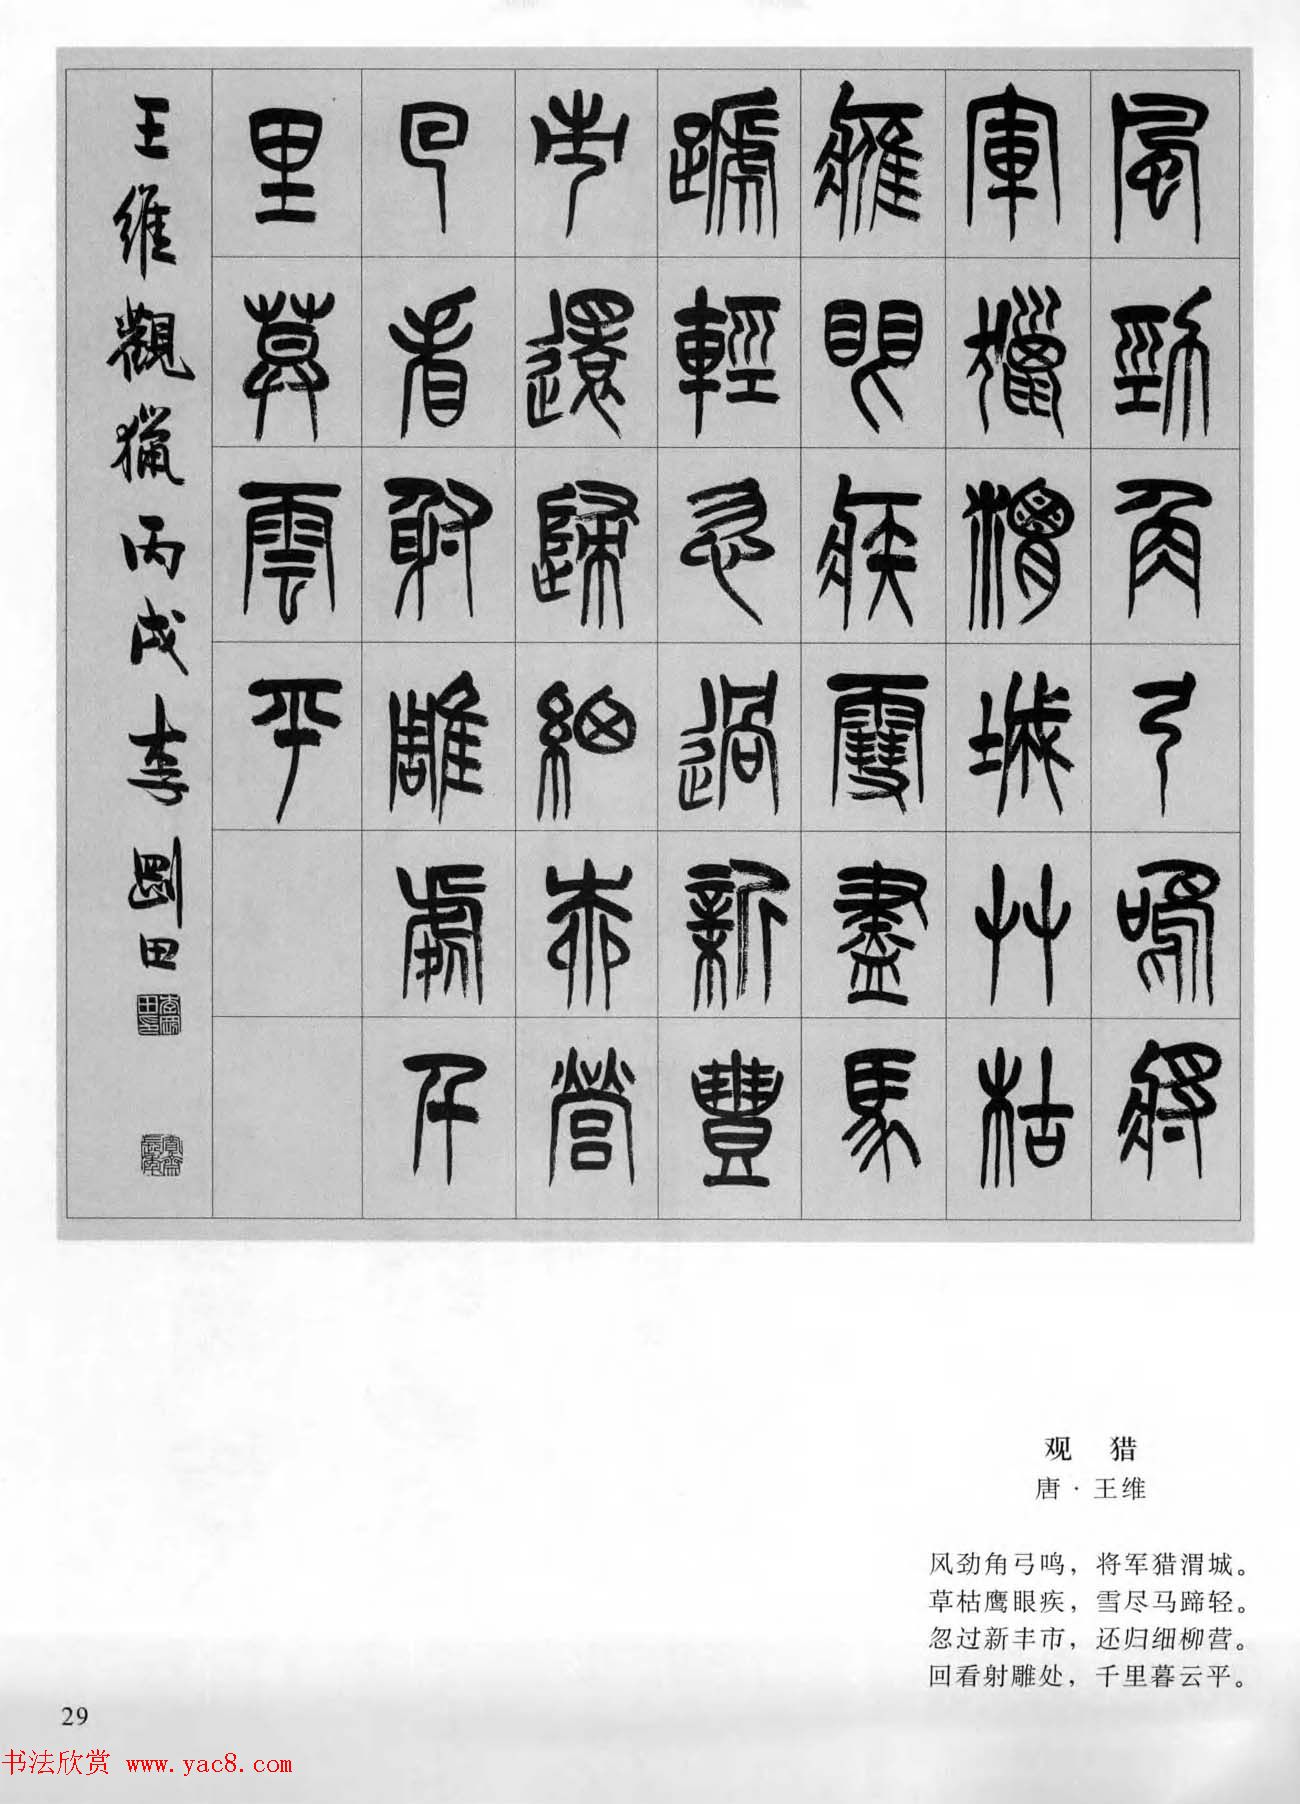 風勁角弓鳴將
軍獵渭城艸枯
鷹眼疾雪盡馬
蹏輕忽過新豐
市還歸細柳營
回看射雕處千
里莫雲平
王維觀獵丙戌李剛田
观 猎
唐·王维
风劲角弓鸣，将军猎渭城。
草枯鹰眼疾，雪尽马蹄轻。
忽过新丰市，还归细柳营。
回看射雕处，千里暮云平。
29
书法欣赏 www.yac8.com